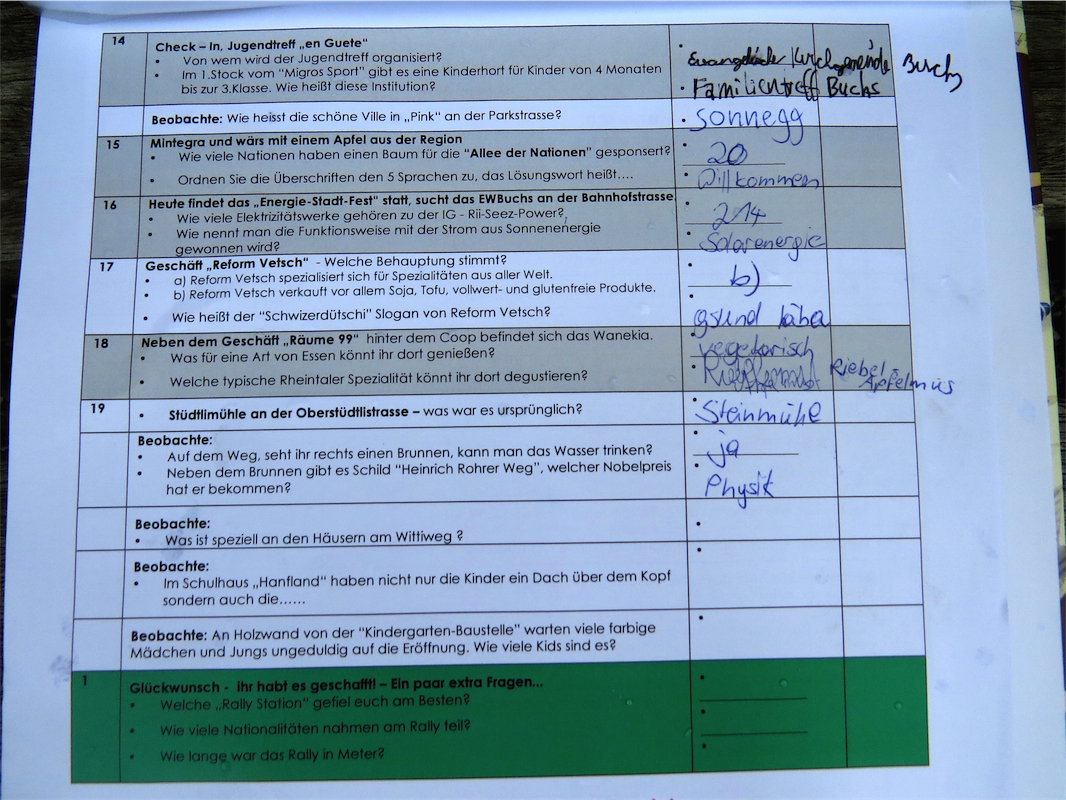 14
Check – In, Jugendtreff „en Guete"
• Von wem wird der Jugendtreff organisiert?
• Evangelische Kirchgemeinde Buchs
• Im 1.Stock vom "Migros Sport" gibt es eine Kinderhort für Kinder von 4 Monaten
bis zur 3.Klasse. Wie heißt diese Institution?
• Familientreff Buchs
Beobachte: Wie heisst die schöne Ville in „Pink" an der Parkstrasse?
• Sonnegg
15
Mintegra und wärs mit einem Apfel aus der Region
• Wie viele Nationen haben einen Baum für die "Allee der Nationen" gesponsert?
• 20
• Ordnen Sie die Überschriften den 5 Sprachen zu, das Lösungswort heißt….
• Willkommen
16
Heute findet das „Energie-Stadt-Fest" statt, sucht das EWBuchs an der Bahnhofstrasse
• Wie viele Elektrizitätswerke gehören zu der IG - Rii-Seez-Power?
• 214
• Wie nennt man die Funktionsweise mit der Strom aus Sonnenenergie
gewonnen wird?
• Solarenergie
17
Geschäft „Reform Vetsch" - Welche Behauptung stimmt?
• a) Reform Vetsch spezialisiert sich für Spezialitäten aus aller Welt.
• b) Reform Vetsch verkauft vor allem Soja, Tofu, vollwert- und glutenfreie Produkte.
• b)
• Wie heißt der "Schwizerdütschi" Slogan von Reform Vetsch?
• gsund läba
18
Neben dem Geschäft „Räume 99" hinter dem Coop befindet sich das Wanekia.
• Was für eine Art von Essen könnt ihr dort genießen?
• vegetarisch
• Welche typische Rheintaler Spezialität könnt ihr dort degustieren?
• Riebel
Apfelmus
19
• Stüdtlimühle an der Oberstüdtlistrasse – was war es ursprünglich?
• Steinmühle
Beobachte:
• Auf dem Weg, seht ihr rechts einen Brunnen, kann man das Wasser trinken?
• ja
• Neben dem Brunnen gibt es Schild "Heinrich Rohrer Weg", welcher Nobelpreis
hat er bekommen?
• Physik
Beobachte:
• Was ist speziell an den Häusern am Wittiweg ?
•
Beobachte:
• Im Schulhaus „Hanfland" haben nicht nur die Kinder ein Dach über dem Kopf
sondern auch die……
•
Beobachte: An Holzwand von der "Kindergarten-Baustelle" warten viele farbige
Mädchen und Jungs ungeduldig auf die Eröffnung. Wie viele Kids sind es?
•
1
Glückwunsch - ihr habt es geschafft! – Ein paar extra Fragen...
• Welche „Rally Station" gefiel euch am Besten?
•
• Wie viele Nationalitäten nahmen am Rally teil?
•
• Wie lange war das Rally in Meter?
•